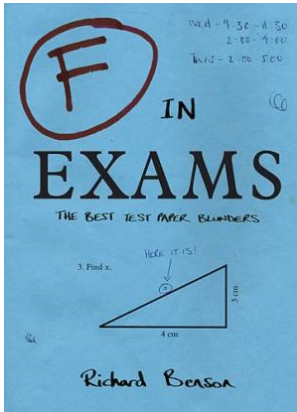 WED - 9:30 - 11:30
2:00 - 4:00
THURS - 2:00 5:00
F
IN
EXAMS
THE BEST TEST PAPER BLUNDERS
HERE IT IS!
3. Find x.
x
3 cm
4 cm
Richard Benson